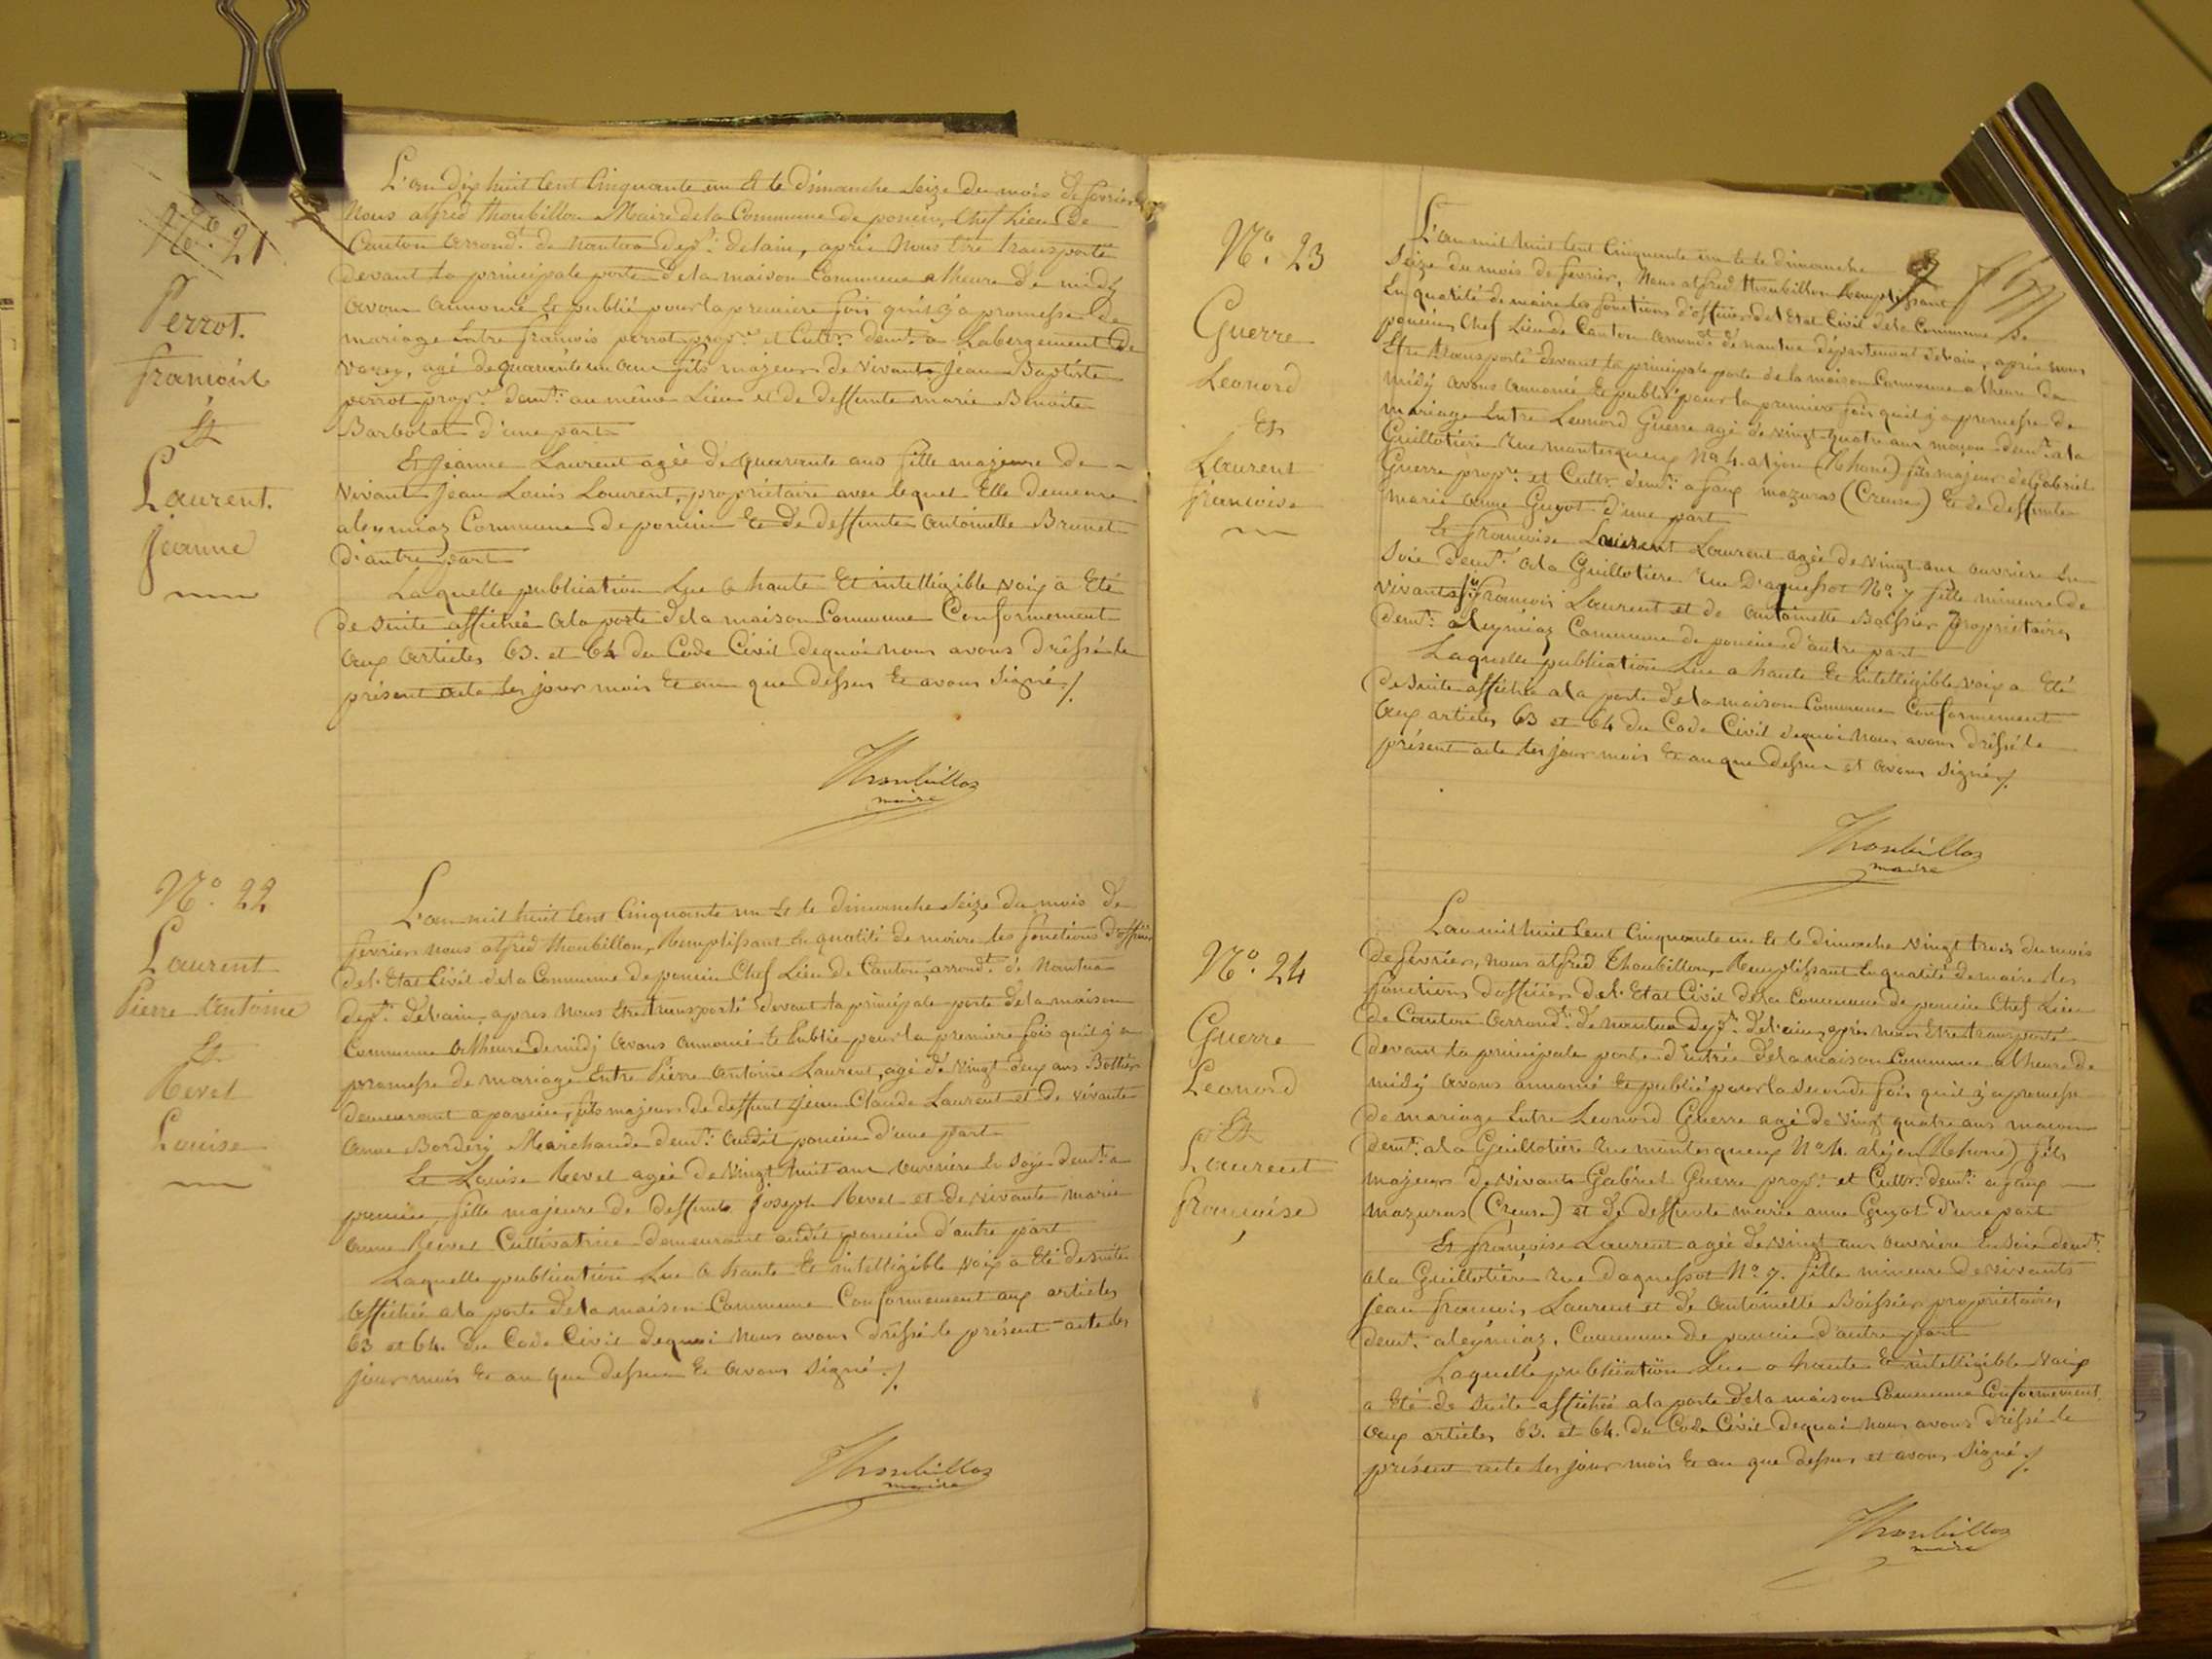 N.° 21
Perrot.
francois
Et
Laurent.
Jeanne
L'an Dix huit Cent Cinquante un Et le dimanche Seize du mois de fevrier
Nous alfred thoubillon Maire de la Commune de poncin, Chef Lieu De
Canton Arrond.t de nantua dep.t de lain, aprés Nous Etre transporté
devant la principale porte de la maison Commune a lheure de midy
avons annoncé Et publié pour la premiere fois quil y a promesse de
mariage Entre francois perrot prop.re et Cult.r dem.t a Labergement De
Varey, agé de quarante un ans fils majeur de vivant Jean Baptiste
perrot prop.re dem.t au même Lieu et de deffunte marie Benoite
Barbolat d'une part
Et Jeanne Laurent agée de quarante ans fille majeure de
vivant Jean Louis Laurent, propriétaire avec lequel Elle demeure
aleymiaz Commune de poncin Et de deffunte antoinette Brunet
D'autre part
Laquelle publication Lue a haute Et intelligible voix a Eté
de suite affichée a la porte de la maison Commune Conformement
aux Articles 63. et 64 du Code Civil dequoi nous avons dréssé le
présent acte les jour mois Et an que dessus Et avons Signé ./.
Thoubillon
maire
N.° 22
Laurent
Pierre Antoine
Et
Revel
Louise
L'an mil huit Cent Cinquante un Et le dimanche Seize du mois de
fevrier nous alfred thoubillon, Remplissant En qualité de maire les fonctions d'officier
de l'Etat Civil de la Commune de poncin Chef Lieu de Canton, arrond.t de Nantua
dep.t de lain, apres nous Etre transporté devant la principale porte de la maison
Commune a lheure de midi avons annoncé Et Publié pour la premiere fois quil y a
promesse de mariage Entre Pierre antoine Laurent, agé de vingt deux ans Bottier
demeurant a poncin, fils majeur de deffunt Jean Claude Laurent et de vivante
anne Bordery Marchande dem.t audit poncin d'une part
Et Louise Revel agée de vingt huit ans ouvriére En Soye dem.t a
poncin, fille majeure de deffunt Joseph Revel et de vivante marie
anne Revel Cultivatrice demeurant audit poncin d'autre part
Laquelle publication Lue a haute Et intelligible voix a Eté de suite
affichée a la porte de la maison Commune Conformement aux articles
63 et 64. du Code Civil dequoi nous avons dréssé le présent acte les
jour mois Et an que dessus Et avons Signé ./.
Thoubillon
maire
N.° 23
Guerre
Leonord
Et
Laurent
francoise
L'an mil huit Cent Cinquante un Et le dimanche
Seize du mois de fevrier, Nous alfred thoubillon Remplissant
En qualité de maire les fonctions d'officier de l'Etat Civil de la Commune de
poncin Chef Lieu de Canton arrond.t de nantua département de lain, aprés nous
Etre transporté devant la principale porte de la maison Commune a lheure de
midy avons annoncé Et publié pour la premiere fois quil y a promesse de
mariage Entre Leonord Guerre agé de vingt quatre ans maçon dem.t a la
Guillotiére Rue montesqueux N° 4. a lyon (Rhone) fils majeur de Gabriel
Guerre prop.re et Cult.r dem.t a faux mazuras (Creuse) Et de deffunte
marie anne Guyot d'une part
Et francoise Laurent Laurent agée de vingt ans ouvriére En
Soie dem.t a la Guillotiére Rue Daguessot N.° 7 fille mineure de
vivants francois Laurent et de antoinette Boissier propriétaires
dem.t aleymiaz Commune de poncin d'autre part
Laquelle publication Lue a haute Et intelligible voix a Eté
de suite affichée a la porte de la maison Commune Conformement
aux articles 63 et 64 du Code Civil dequoi Nous avons dréssé le
présent acte les jour mois Et an que dessus et avons Signé ./.
Thoubillon
maire
N.° 24
Guerre
Leonord
Et
Laurent
francoise
L'an mil huit Cent Cinquante un Et le dimanche vingt trois du mois
de février, nous alfred Thoubillon, Remplissant En qualité de maire les
fonctions d'officier de l'Etat Civil de la Commune de poncin Chef Lieu
de Canton Arrond.t de nantua dep.t de l'ain, aprés nous Etre transporté
devant la principale porte d'entrée de la maison Commune a lheure de
midi avons annoncé Et publié pour la seconde fois quil y a promesse
de mariage Entre Leonord Guerre agé de vingt quatre ans macon
dem.t a la Guillotiére Rue montesqueux N° 4. a lyon (Rhone) fils
majeur de vivant Gabriel Guerre prop.re et Cult.r dem.t a faux
mazuras (Creuse) et de deffunte marie anne Guyot d'une part
Et françoise Laurent agée de vingt ans ouvriére En Soie dem.t
a la Guillotiére Rue daguessot N.° 7. fille mineure de vivants
Jean francois Laurent et de antoinette Boissier propriétaires
dem.t aleymiaz, Commune de poncin d'autre part
Laquelle publication Lue a haute Et intelligible voix
a Eté de suite affichée a la porte de la maison Commune Conformement
aux articles 63. et 64. du Code Civil dequoi nous avons dréssé le
présent acte les jour mois Et an que dessus et avons Signé ./.
Thoubillon
maire